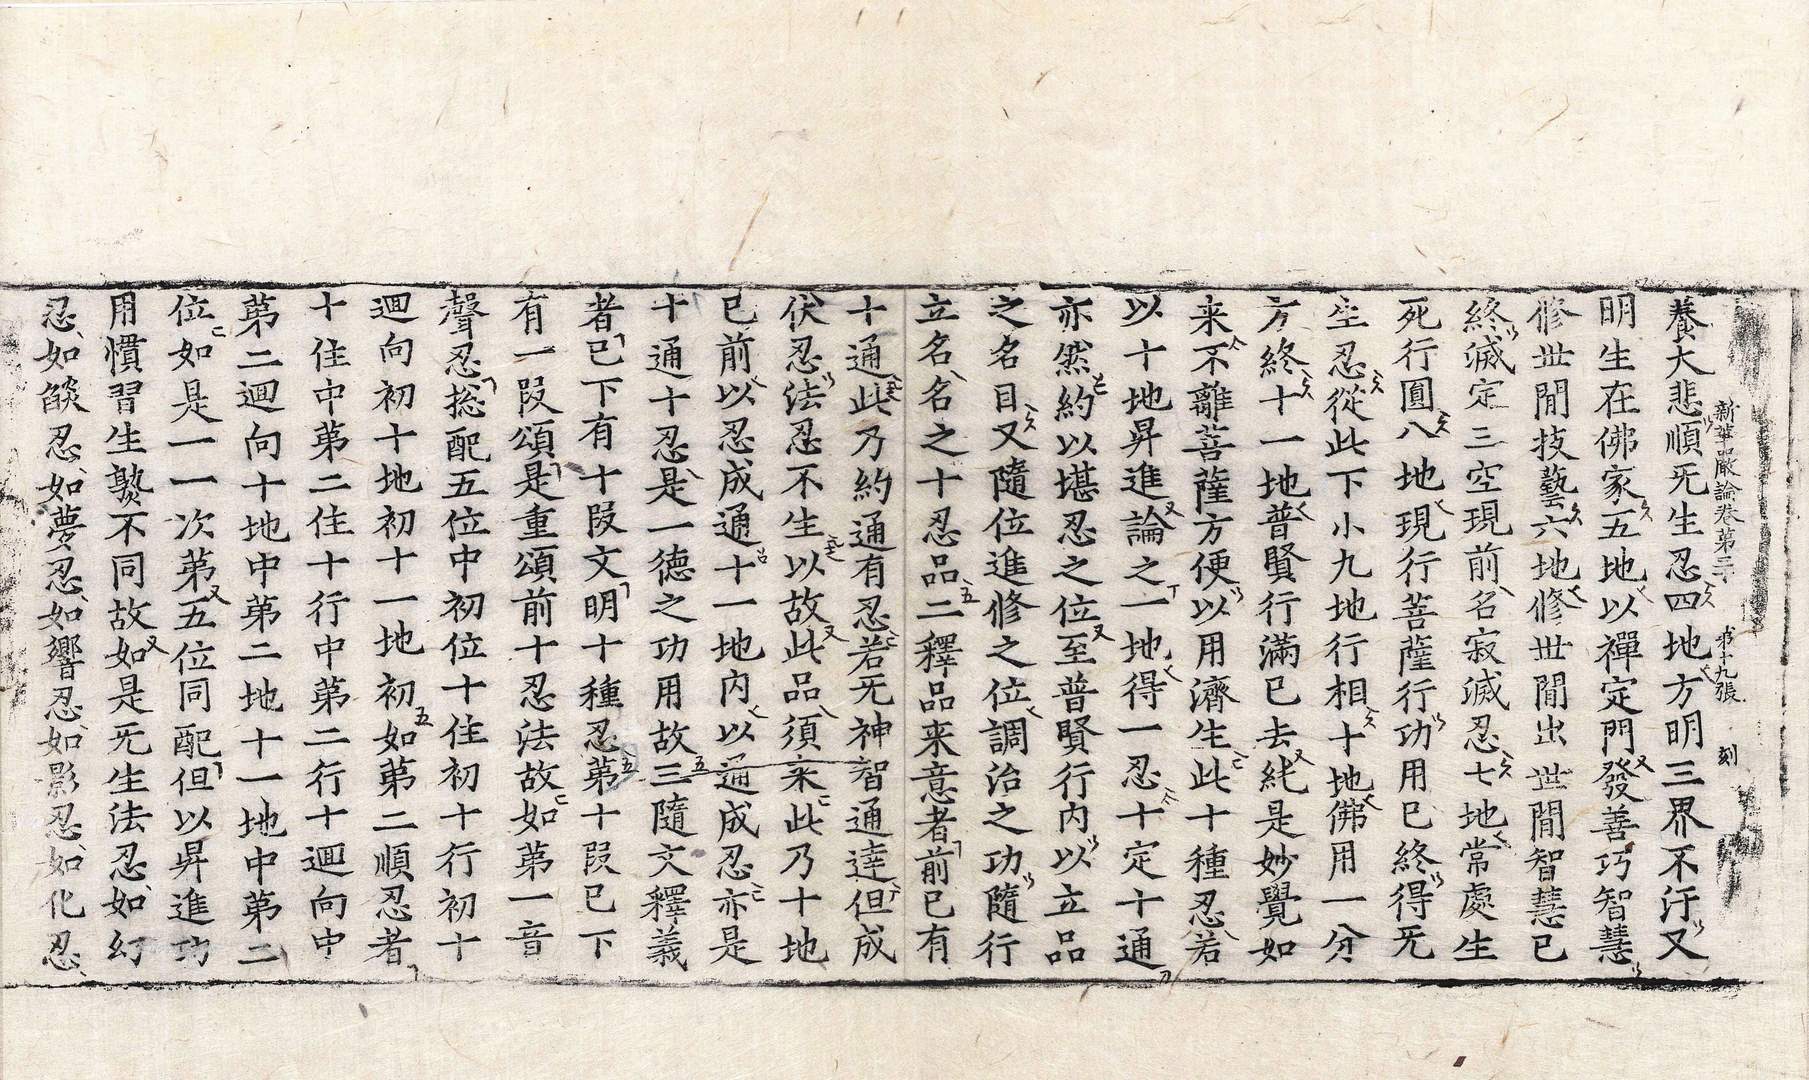 新華嚴論卷第二十　第十九張　刻
養大悲順旡生忍四地方明三界不汙又
明生在佛家五地以禪定門發善巧智慧
修世閒技藝六地修世閒出世閒智慧已
終滅定三空現前名寂滅忍七地常處生
死行圓八地現行菩薩行功用已終得旡
生忍從此下小九地行相十地佛用一分
方終十一地普賢行滿已去純是妙覺如
来不離菩薩方便以用濟生此十種忍若
以十地昇進論之一地得一忍十定十通
亦然約以堪忍之位至普賢行內以立品
之名目又隨位進修之位調治之功隨行
立名名之十忍品二釋品来意者前已有
十通此乃約通有忍若旡神智通達但成
伏忍法忍不生以故此品須来此乃十地
已前以忍成通十一地內以通成忍亦是
十通十忍是一德之功用故三隨文釋義
者已下有十段文明十種忍第十段已下
有一段頌是重頌前十忍法故如第一音
聲忍揔配五位中初位十住初十行初十
迴向初十地初十一地初如第二順忍者
十住中第二住十行中第二行十迴向中
第二迴向十地中第二地十一地中第二
位如是一一次第五位同配但以昇進功
用慣習生熟不同故如是旡生法忍如幻
忍如燄忍如夢忍如響忍如影忍如化忍